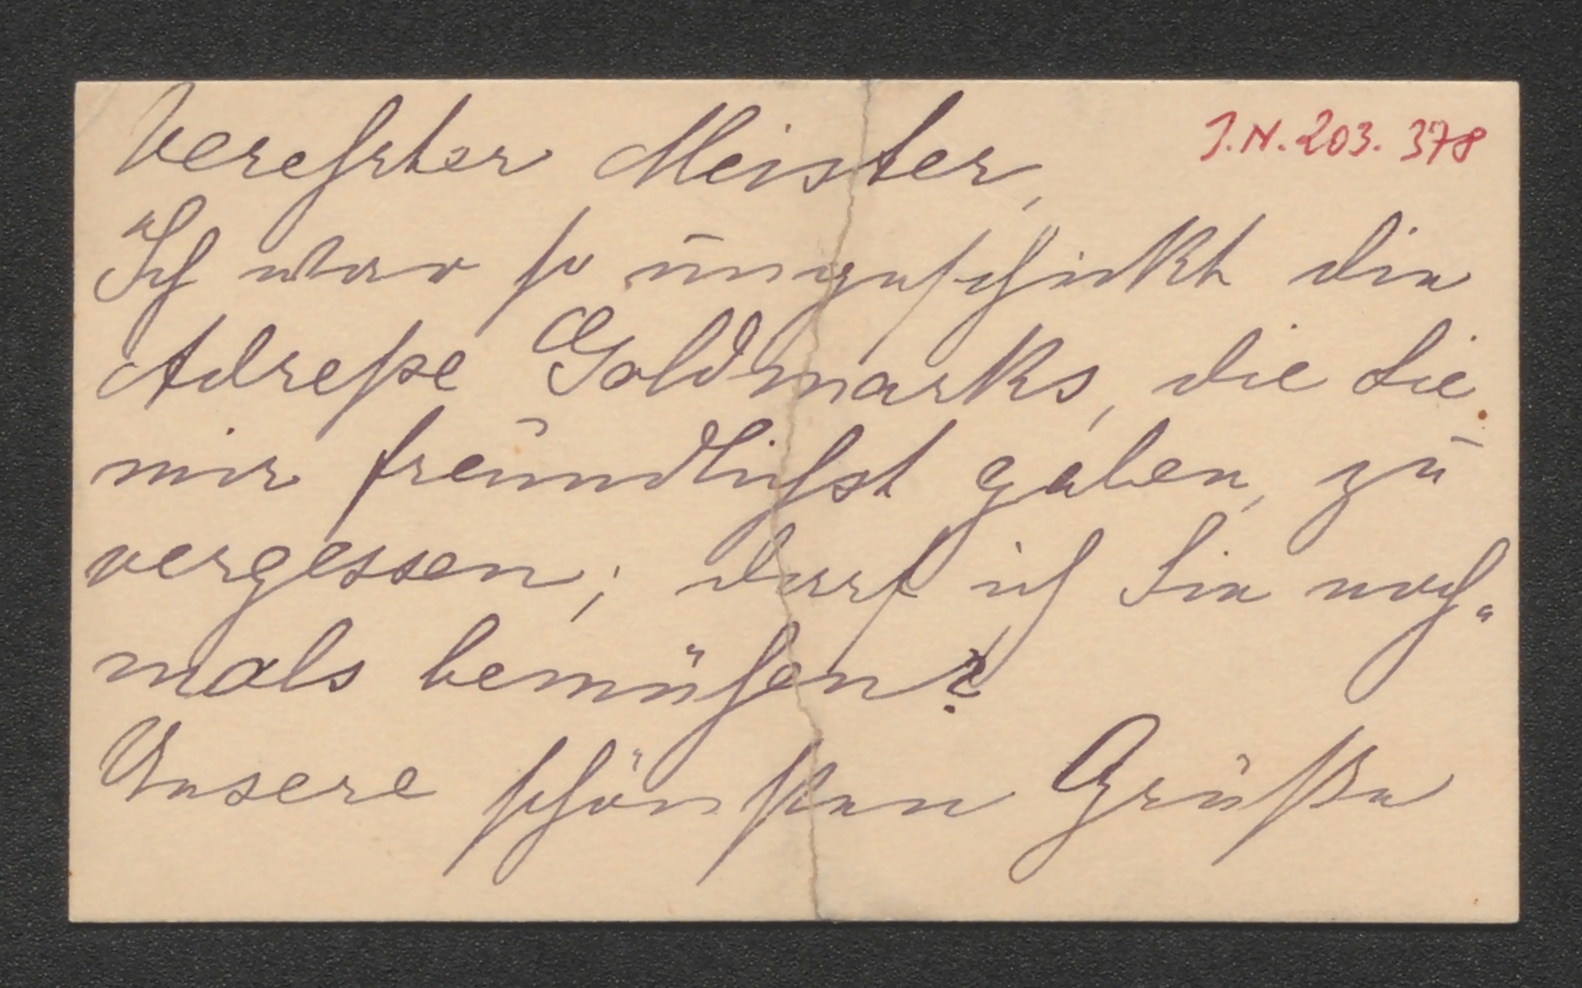 Verehrter Meister,
J.N. 203.378
Ich war so ungeschickt die
Adreße Goldmarks, die Sie
mir freundlichst gaben, zu
vergessen; darf ich Sie noch-
mals bemühen?
Unsere schönsten Grüße